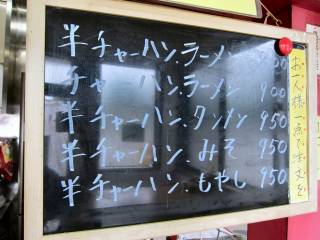 半チャーハン.ラーメン 900
チャーハン.ラーメン 900
半チャーハン.タンメン 950
半チャーハン.みそ 950
半チャーハン.もやし 950
お一人様一点で注文を